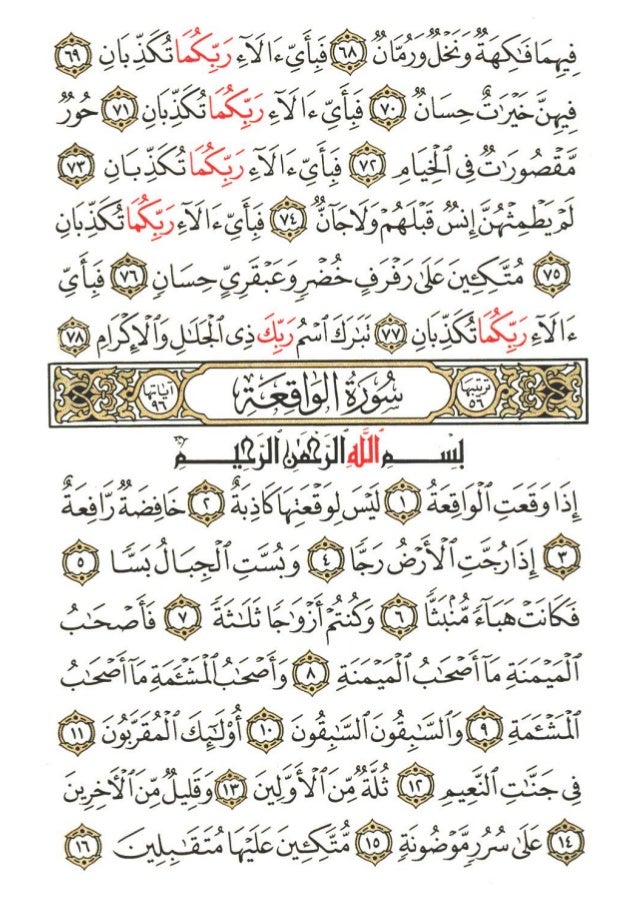 فِيهِمَا فَٰكِهَةٌ وَنَخْلٌ وَرُمَّانٌ ٦٨ فَبِأَيِّ ءَالَآءِ رَبِّكُمَا تُكَذِّبَانِ ٦٩
فِيهِنَّ خَيْرَٰتٌ حِسَانٌ ٧٠ فَبِأَيِّ ءَالَآءِ رَبِّكُمَا تُكَذِّبَانِ ٧١ حُورٌ
مَّقْصُورَٰتٌ فِي الْخِيَامِ ٧٢ فَبِأَيِّ ءَالَآءِ رَبِّكُمَا تُكَذِّبَانِ ٧٣
لَمْ يَطْمِثْهُنَّ إِنسٌ قَبْلَهُمْ وَلَا جَآنٌّ ٧٤ فَبِأَيِّ ءَالَآءِ رَبِّكُمَا تُكَذِّبَانِ
٧٥ مُتَّكِـِٔينَ عَلَىٰ رَفْرَفٍ خُضْرٍ وَعَبْقَرِيٍّ حِسَانٍ ٧٦ فَبِأَيِّ
ءَالَآءِ رَبِّكُمَا تُكَذِّبَانِ ٧٧ تَبَٰرَكَ اسْمُ رَبِّكَ ذِي الْجَلَٰلِ وَالْإِكْرَامِ ٧٨
ترتيبها ٥٦ سُورَةُ الْوَاقِعَةِ آياتها ٩٦
بِسْمِ اللَّهِ الرَّحْمَٰنِ الرَّحِيمِ
إِذَا وَقَعَتِ الْوَاقِعَةُ ١ لَيْسَ لِوَقْعَتِهَا كَاذِبَةٌ ٢ خَافِضَةٌ رَّافِعَةٌ
٣ إِذَا رُجَّتِ الْأَرْضُ رَجًّا ٤ وَبُسَّتِ الْجِبَالُ بَسًّا ٥
فَكَانَتْ هَبَآءً مُّنۢبَثًّا ٦ وَكُنتُمْ أَزْوَٰجًا ثَلَٰثَةً ٧ فَأَصْحَٰبُ
الْمَيْمَنَةِ مَآ أَصْحَٰبُ الْمَيْمَنَةِ ٨ وَأَصْحَٰبُ الْمَشْـَٔمَةِ مَآ أَصْحَٰبُ
الْمَشْـَٔمَةِ ٩ وَالسَّٰبِقُونَ السَّٰبِقُونَ ١٠ أُولَٰٓئِكَ الْمُقَرَّبُونَ ١١
فِي جَنَّٰتِ النَّعِيمِ ١٢ ثُلَّةٌ مِّنَ الْأَوَّلِينَ ١٣ وَقَلِيلٌ مِّنَ الْءَاخِرِينَ
١٤ عَلَىٰ سُرُرٍ مَّوْضُونَةٍ ١٥ مُّتَّكِـِٔينَ عَلَيْهَا مُتَقَٰبِلِينَ ١٦